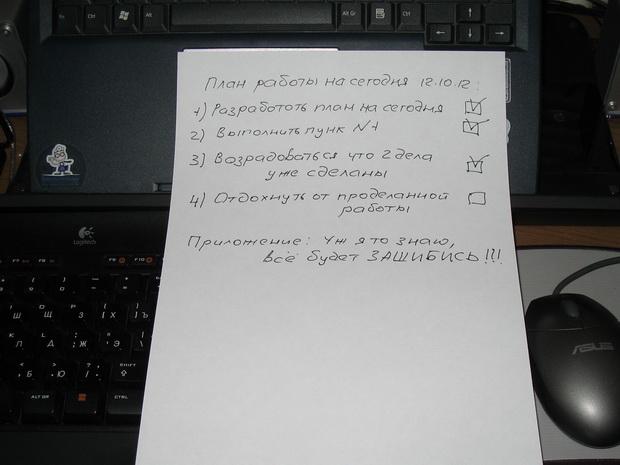 План работы на сегодня 12.10.12
1) Разработоть план на сегодня
2) Выполнить пунк №1
3) Возрадоваться что 2 дела
уже сделаны
4) Отдохнуть от проделанной
работы
Приложение: Уж я то знаю,
всё будет ЗАШИБИСЬ!!!
Ctrl
Alt
Alt Gr
Ctrl
Logitech
F9
F10
Ш Щ З Х Ъ
Л Д Ж Э
Б Ю
SHIFT
ALT GR
CTRL
ASUS